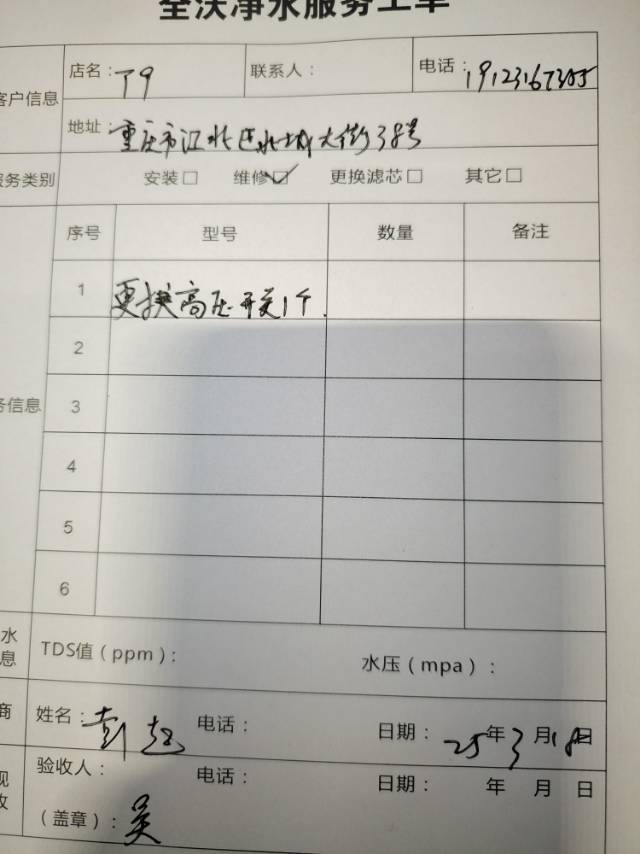 全沃净水服务工单
客户信息
店名：T9 联系人： 电话：19123167305
地址：重庆市江北区北城大街38号
服务类别 安装□ 维修☑ 更换滤芯□ 其它□
序号 型号 数量 备注
1 更换高压开关1个.
2
务信息 3
4
5
6
水 息 TDS值（ppm）： 水压（mpa）：
商 姓名：彭 电话： 日期：25年3月18日
验收人： 电话： 日期： 年 月 日
（盖章）：吴